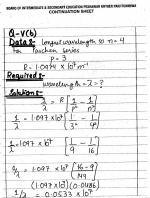 BOARD OF INTERMEDIATE & SECONDARY EDUCATION PESHAWAR KHYBER PAKHTUNKHWA
CONTINUATION SHEET
Q-V(b)
Data:- longest wavelength n = 4
for Paschen series
p = 3
R = 1.0974 x 10⁷ m⁻¹
Required:-
wavelength = λ = ?
Solution:-
1/λ = R [1/p² - 1/n²]
1/λ = 1.097 x 10⁷ [1/3² - 1/4²]
1/λ = 1.097 x 10⁷ [1/9 - 1/16]
1/λ = 1.097 x 10⁷ [16-9/144]
(1.097 x 10⁷) (0.0486)
1/λ = 0.0533 x 10⁷